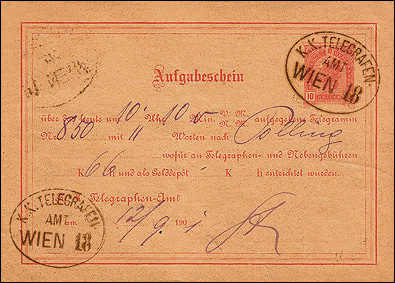 K.K. TELEGRAFEN-
AMT
WIEN 18
Aufgabeschein
10
über das heute um 10 Uhr 10 Min. V. M. N. M. aufgegebene Telegramm
No. 850 mit 11 Worten nach Polling
wofür an Telegraphen- und Nebengebühren
K 66 h und als Golddepôt K h entrichtet wurden.
K.K. TELEGRAFEN-
AMT
WIEN 18
Telegraphen-Amt
am 12/9 190 1